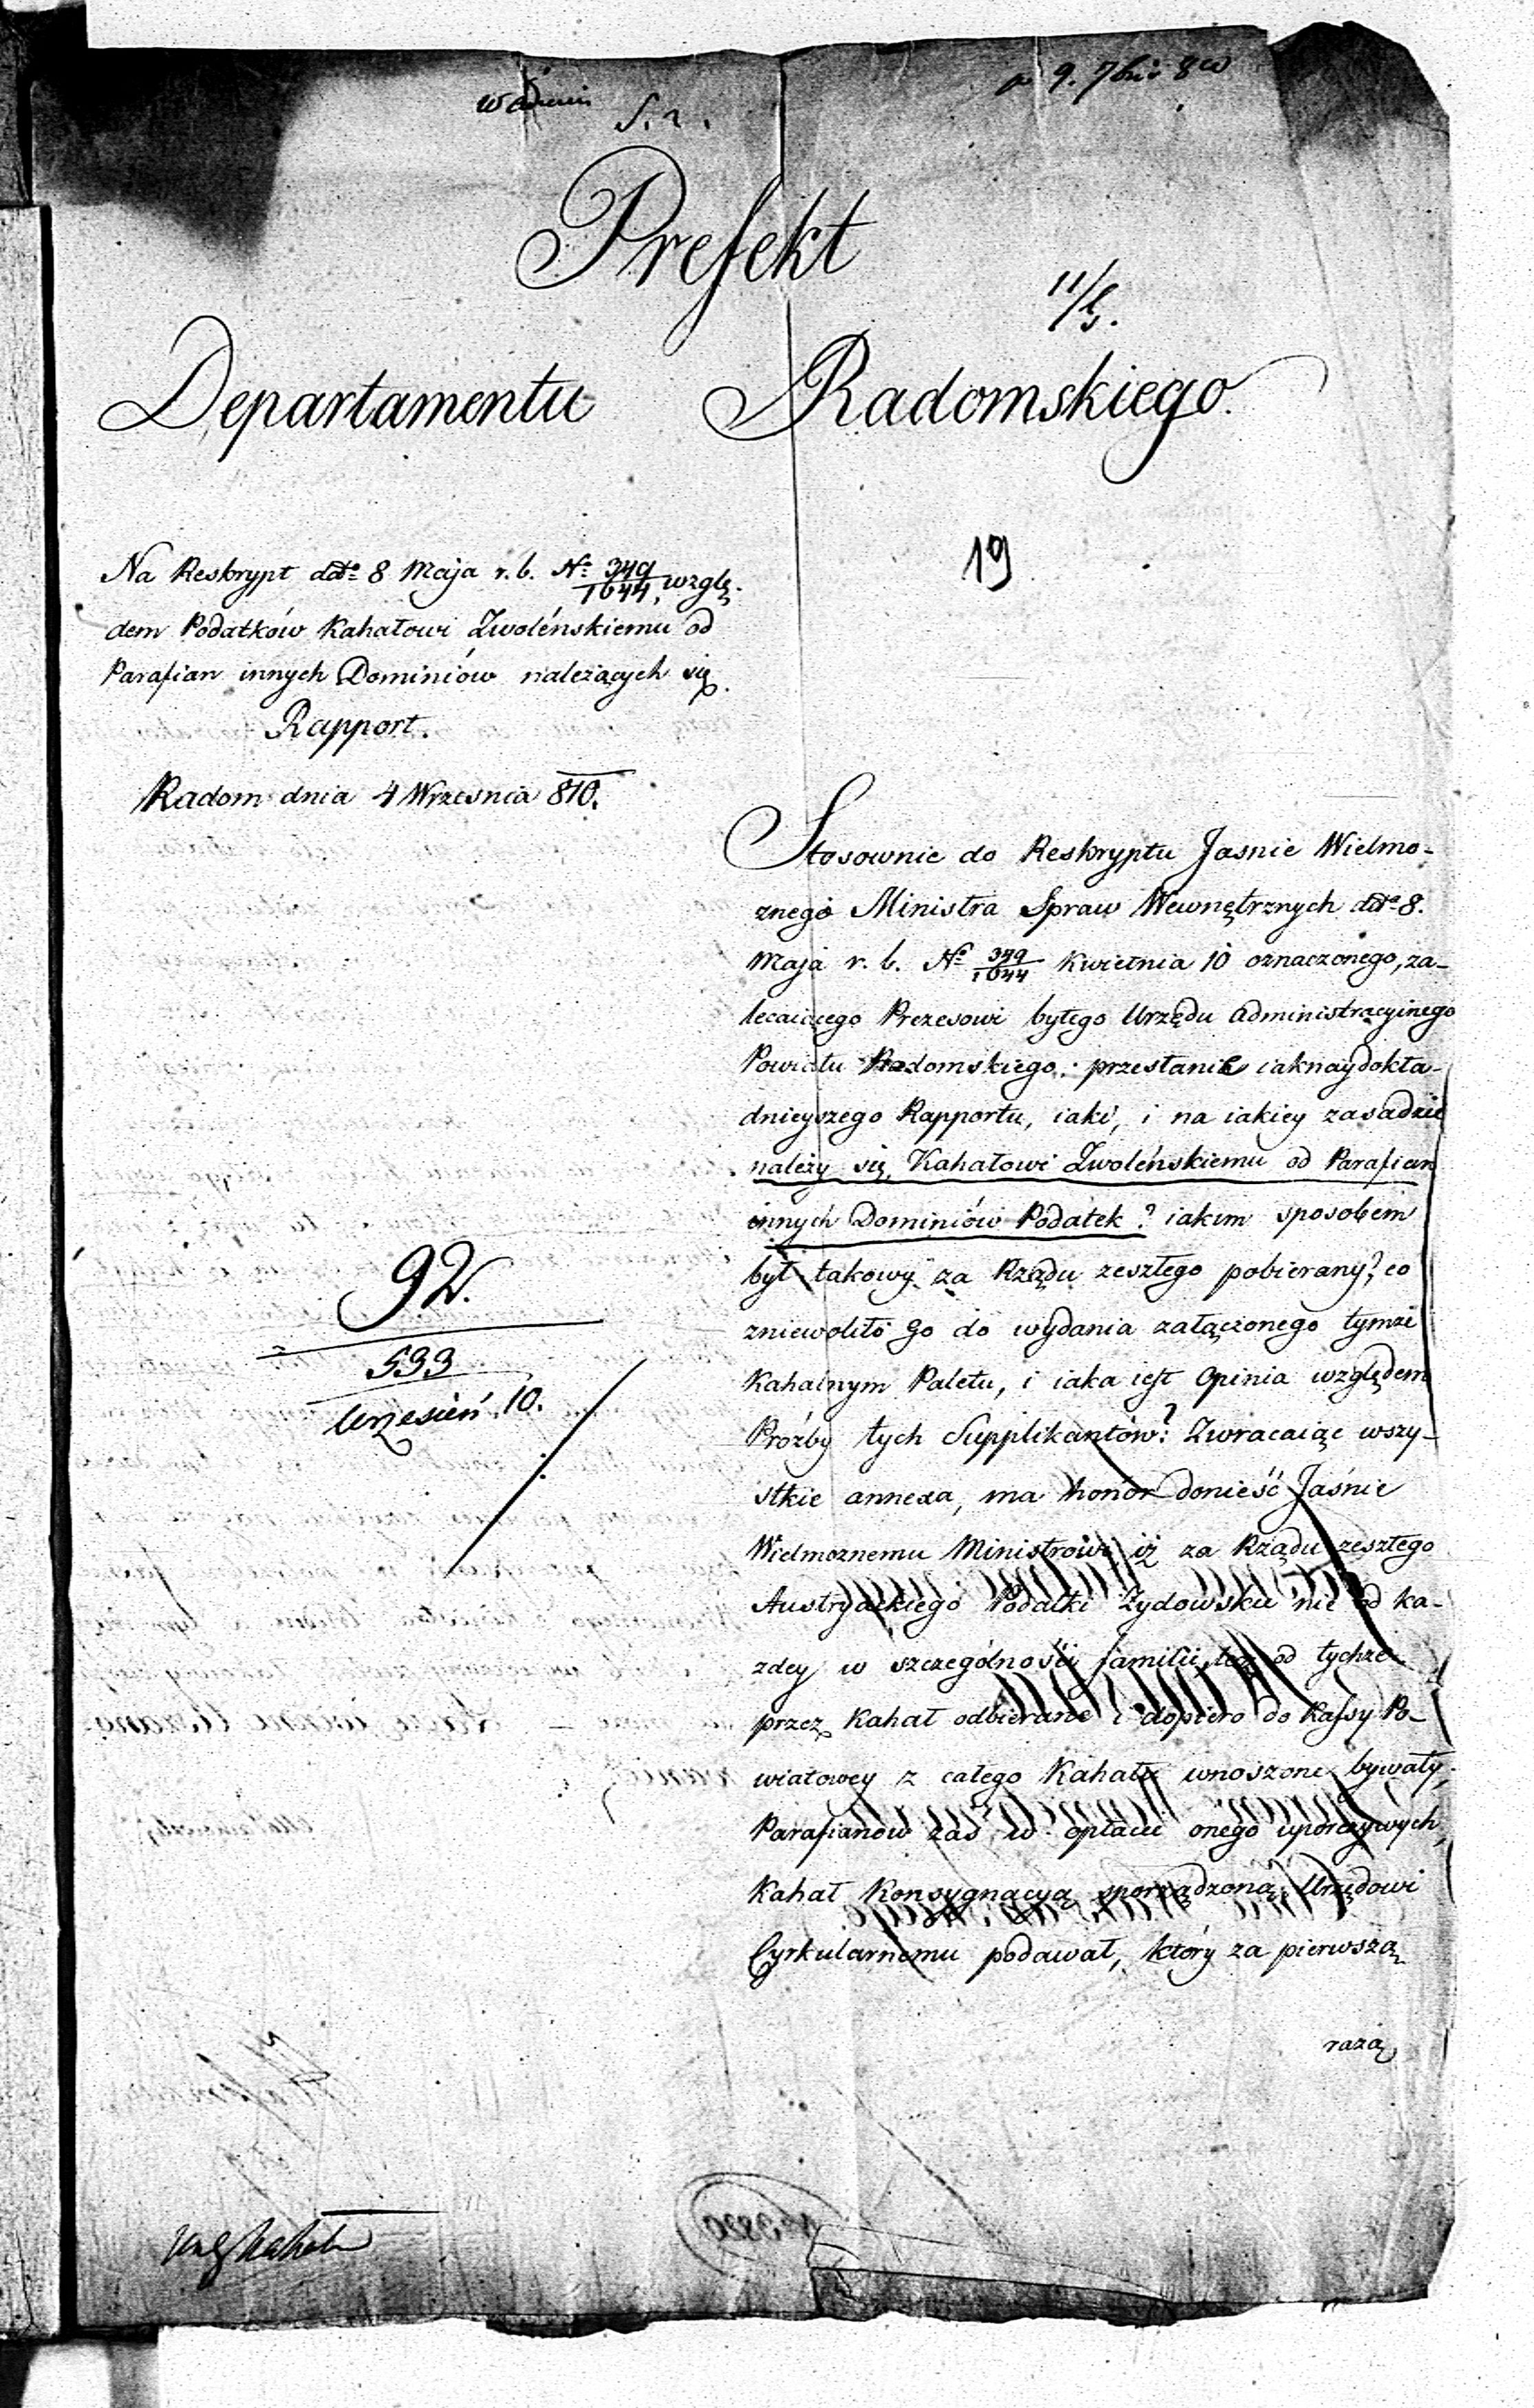 S. 2.
Prefekt
11/9.
Departamentu Radomskiego.
19
Na Reskrypt ddto 8 Maja r. b. No 349/1644, wzglę-
dem Podatków Kahałowi Zwoleńskiemu od
Parafian innych Dominiów należących się.
Rapport.
Radom dnia 4 Września 810.
92.
533
Wrzesień. 10.
Stosownie do Reskryptu Jasnie Wielmo-
znego Ministra Spraw Wewnętrznych ddto 8.
Maja r. b. No 349/1644 Kwietnia 10 oznaczonego, za-
lecaiącego Prezesowi byłego Urzędu administracyinego
Powiatu Radomskiego: przesłanie iaknaydokła-
dnieyszego Rapportu, iaki, i na iakiey zasadzie
należy się Kahałowi Zwoleńskiemu od Parafian
innych Dominiów Podatek? iakim sposobem
był takowy za Rządu zeszłego pobierany? co
zniewoliło go do wydania załączonego tymże
Kahalnym Paletu, i iaka iest Opinia względem
Prózby tych Supplikantów? Zwracaiąc wszy-
stkie annexa, ma honor donieść Jaśnie
Wielmoznemu Ministrowi, iż za Rządu zeszłego
Austryackiego Podatki Zydowskie nie od ka-
zdey w szczególności familii, lecz od tychże
przez Kahał odbierane i dopiero do Kassy Po-
wiatowey z całego Kahału wnoszone bywały,
Parafianow zaś w opłacie onego uporczywych,
Kahał Konsygnacyą sporządzoną Urzędowi
Cyrkularnemu podawał, który za pierwszą
razą